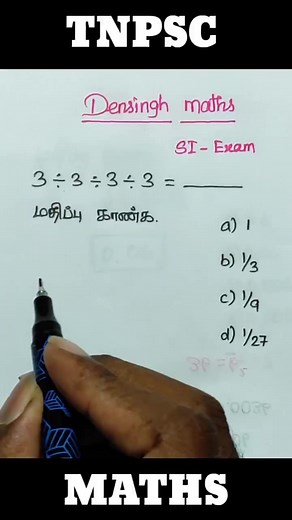 TNPSC
Densingh maths
SI - Exam
3 ÷ 3 ÷ 3 ÷ 3 = ______
மதிப்பு காண்க.
a) 1
b) 1/3
c) 1/9
d) 1/27
MATHS